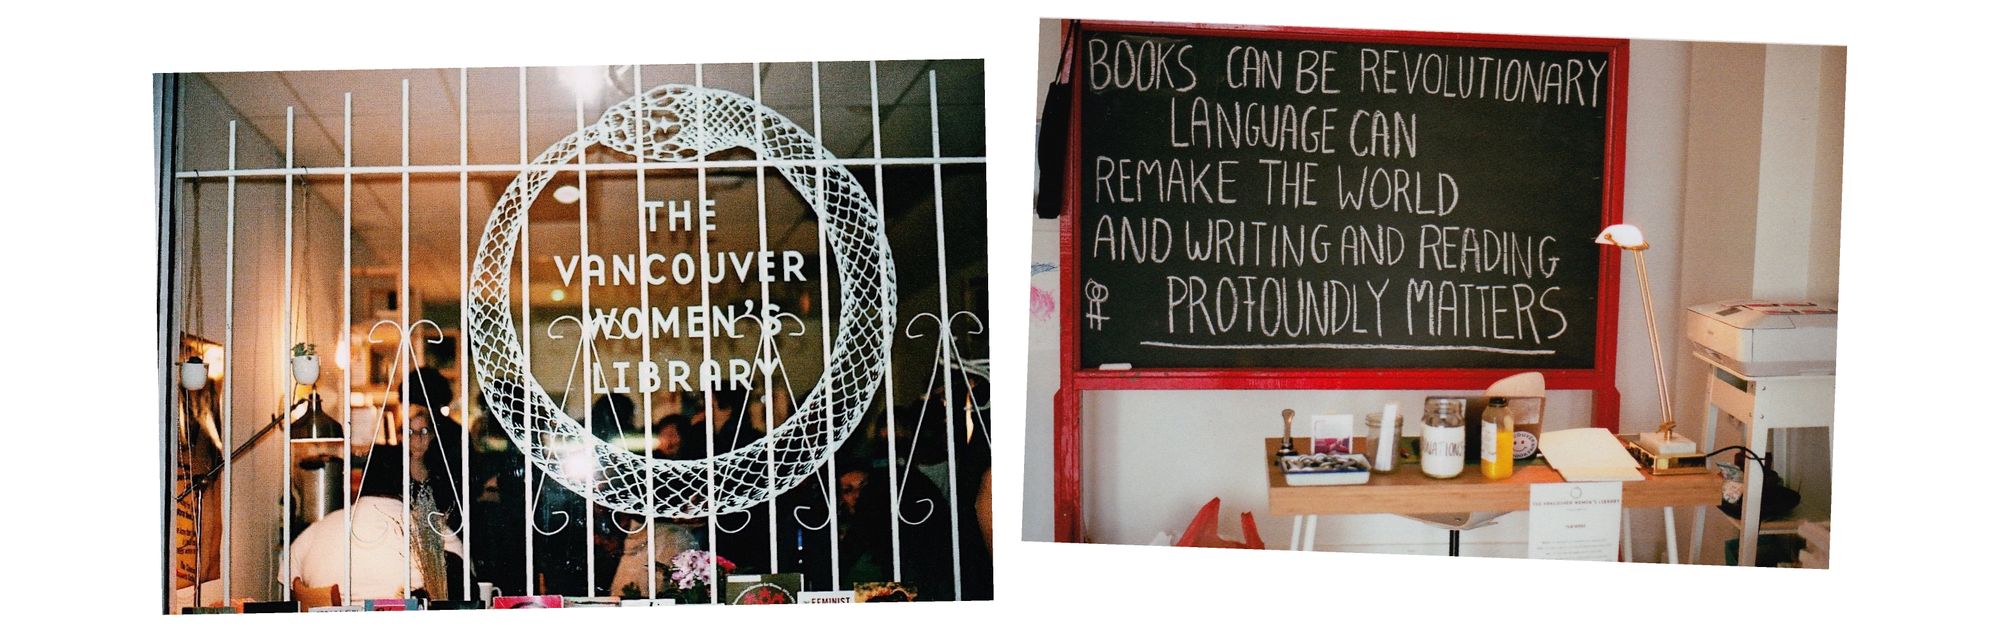 THE
VANCOUVER
WOMEN'S
LIBRARY
FEMINIST
BOOKS CAN BE REVOLUTIONARY
LANGUAGE CAN
REMAKE THE WORLD
AND WRITING AND READING
PROFOUNDLY MATTERS
THE VANCOUVER WOMEN'S LIBRARY